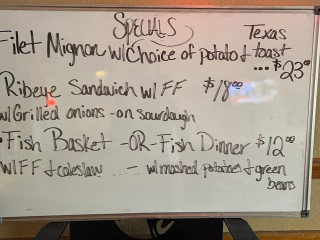 Specials
Filet Mignon w/Choice of potato & Texas toast
... $23.00
Ribeye Sandwich w/ FF $18.00
w/Grilled onions - on sourdough
• Fish Basket -OR- Fish Dinner $12.00
w/ FF & coleslaw -- w/mashed potatoes & green beans